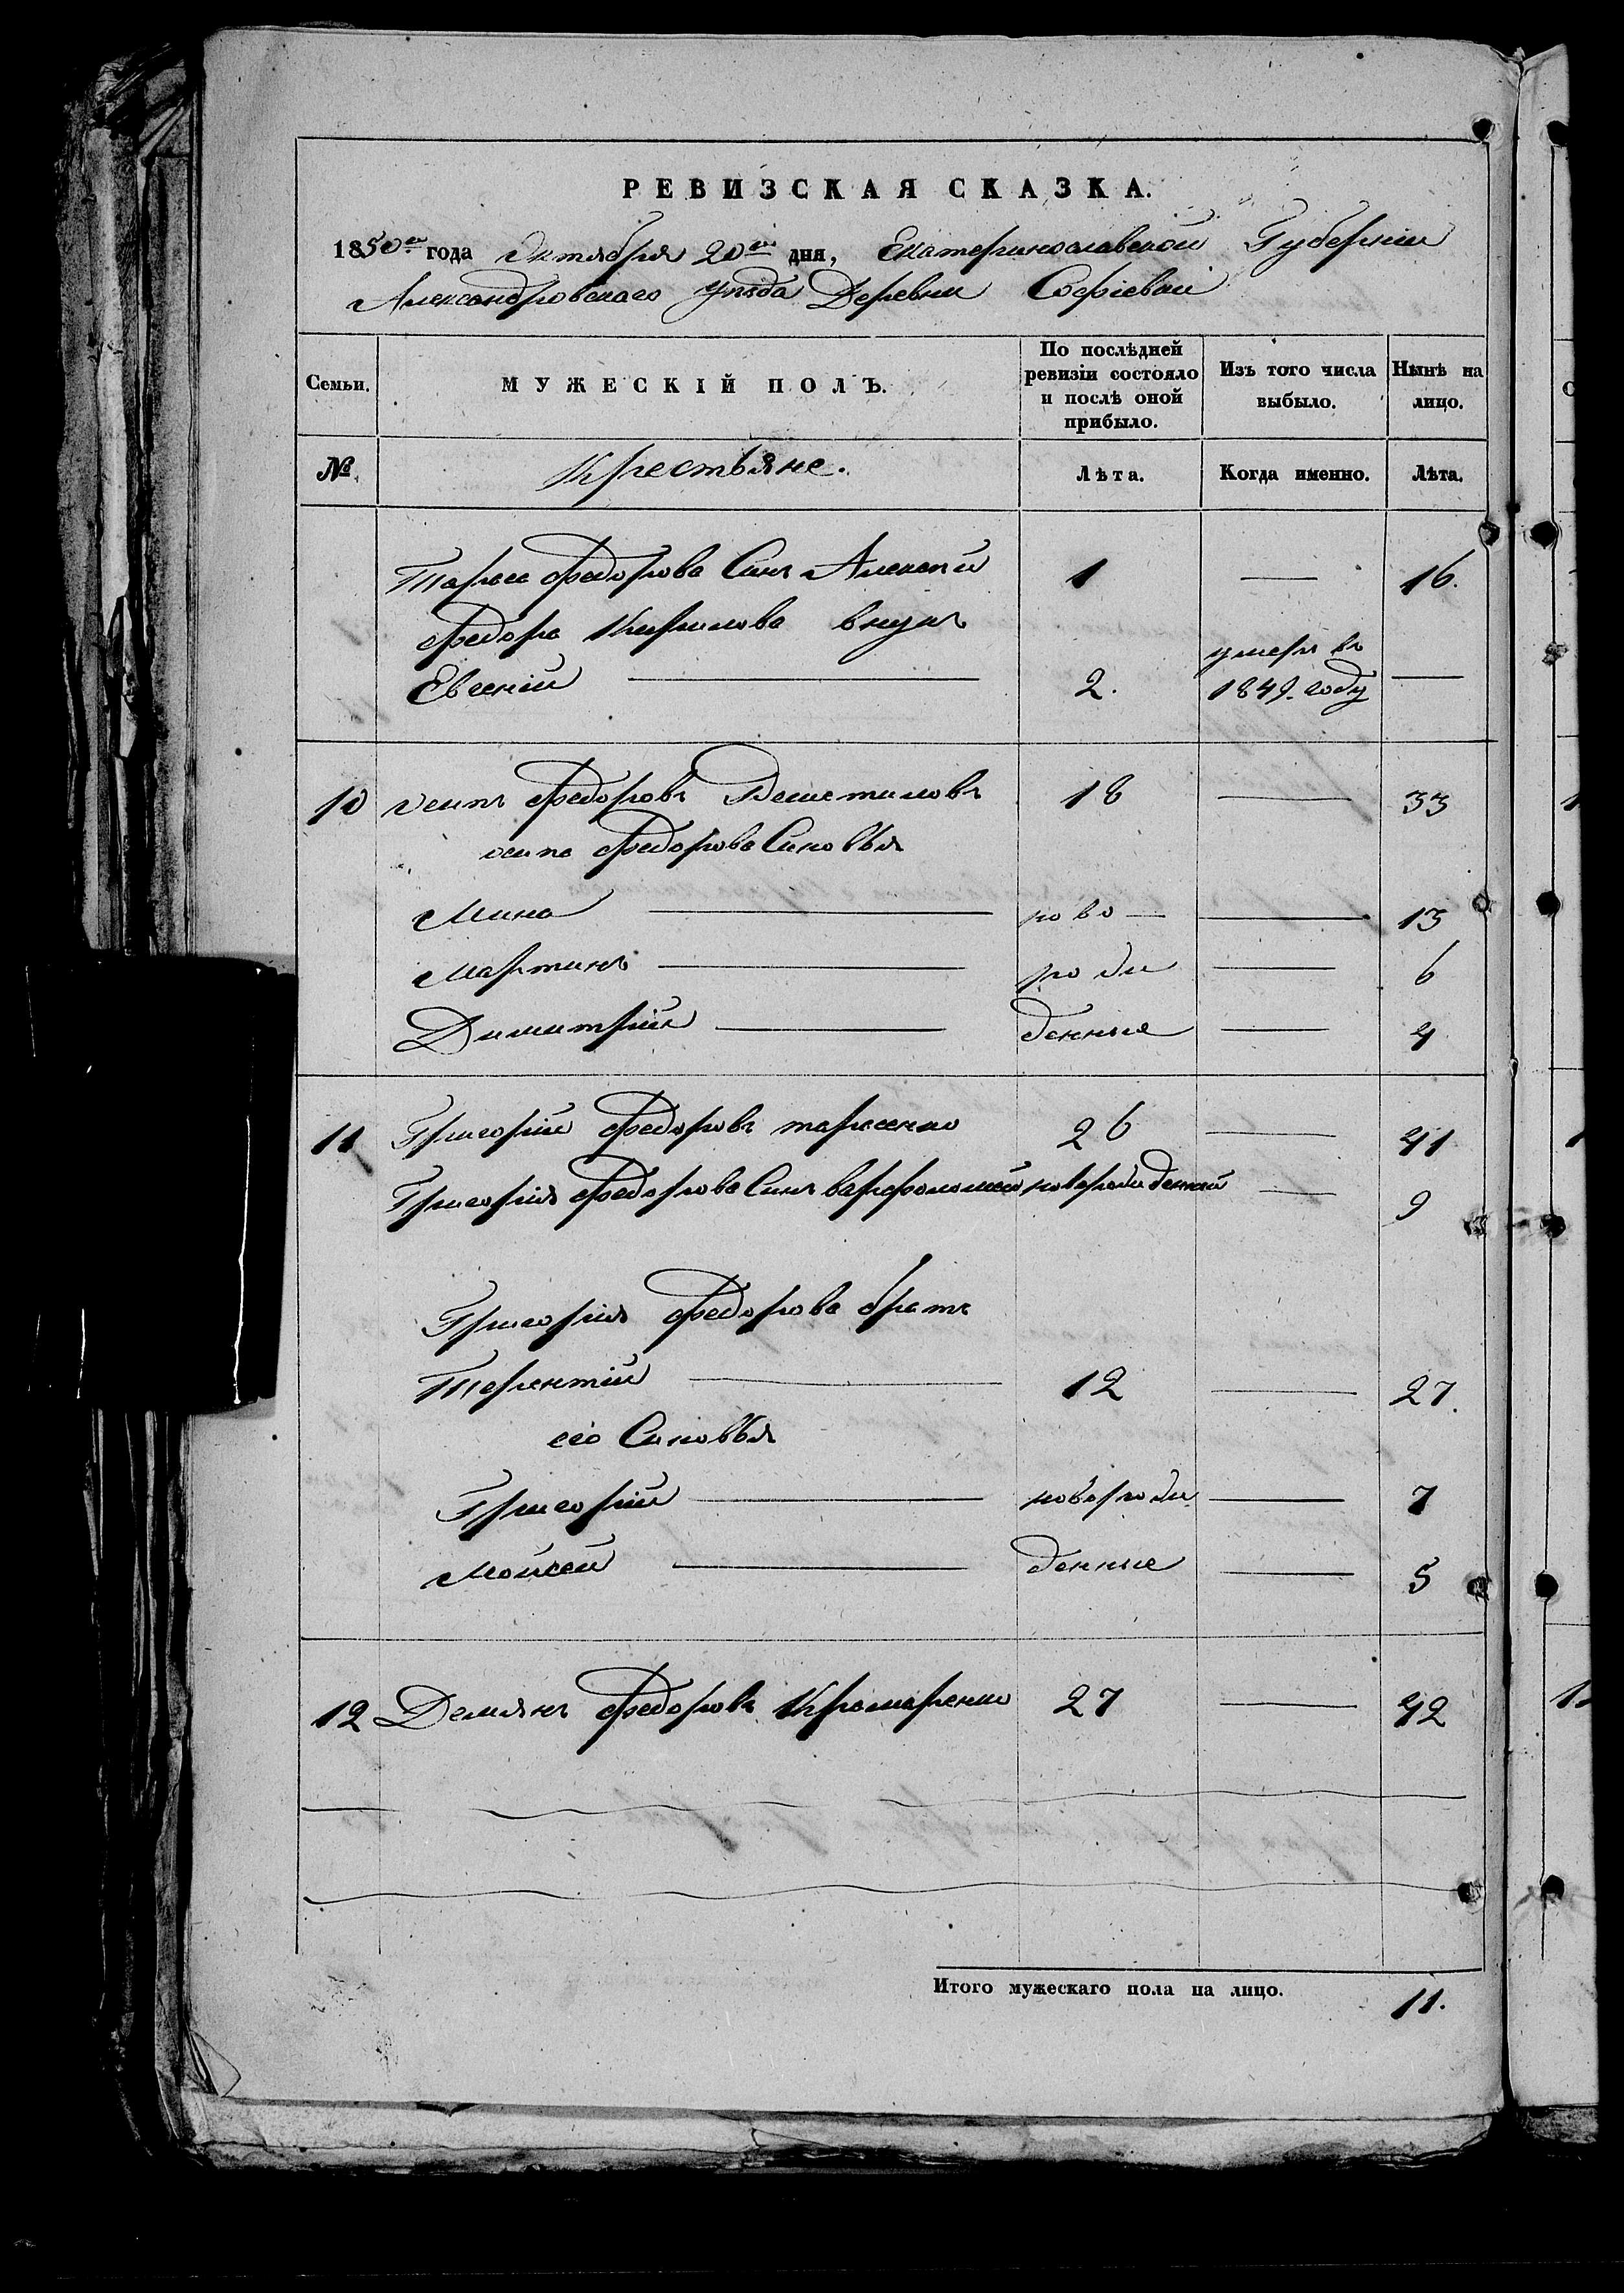 РЕВИЗСКАЯ СКАЗКА.
1850го года октября 20го дня, Екатеринославской Губернии
Александровскаго уѣзда Деревни Софіевки
Семьи. МУЖЕСКІЙ ПОЛЪ. По послѣдней ревизіи состояло и послѣ оной прибыло. Изъ того числа выбыло. Нынѣ на лицо.
№ Крестьяне. Лѣта. Когда именно. Лѣта.
Тараса Федорова Синъ Алексѣй 1 — 16.
Федора Кирилова внукъ
Евсеній 2. умеръ въ 1849. году —
10 осипъ Федоровъ 18 — 33
осипа Федорова Синовья
Мина ново — 13
Мартинъ рожи — 6
Димитрій денные — 4
11 Григорій Федоровъ тарасенко 26 — 41
Григорія Федорова Синъ варфоломей новорожиденній — 9
Григорія Федорова братъ
Терентій 12 — 27.
его Синовья
Григорій новорожи — 7
Мойсей денные — 5
12 Демянъ Федоровъ Крамаренко 27 — 42
Итого мужескаго пола на лицо. 11.